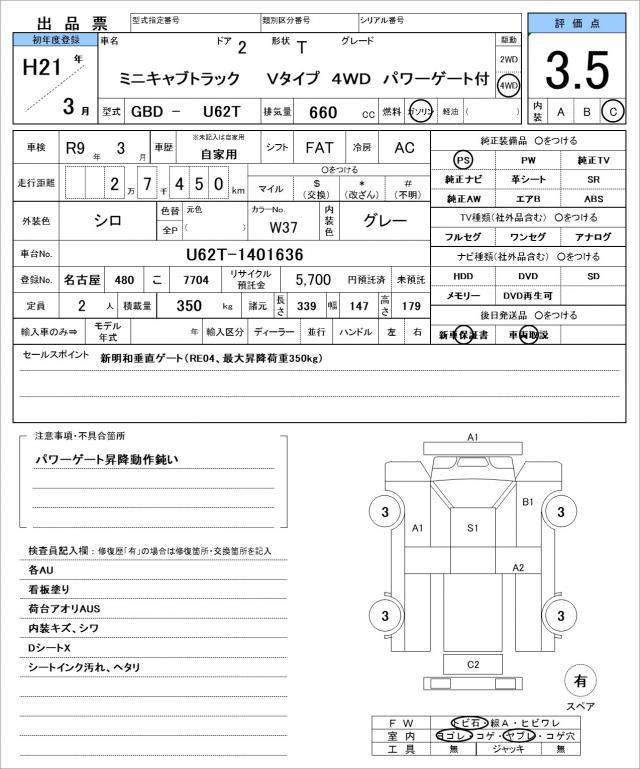 出 品 票 型式指定番号 類別区分番号 シリアル番号 評 価 点
初年度登録 車名 ドア 2 形状 T グレード 駆動
H21 年 3 月 ミニキャブトラック Vタイプ 4WD パワーゲート付 2WD 4WD 3.5
型式 GBD － U62T 排気量 660 CC 燃料 ガソリン 軽油 ( ) 内装 A B C
車検 R9 年 3 月 車歴 ※未記入は自家用 自家用 シフト FAT 冷房 AC
純正装備品 〇をつける
PS PW 純正TV
走行距離 2 万 7 千 4 5 0 km 〇をつける
マイル $ (交換) * (改ざん) # (不明)
純正ナビ 革シート SR
純正AW エアB ABS
外装色 シロ 色替 元色 全P ( ) カラーNo. W37 内装色 グレー
TV種類(社外品含む) 〇をつける
フルセグ ワンセグ アナログ
車台No. U62T-1401636
ナビ種類(社外品含む) 〇をつける
登録No. 名古屋 480 こ 7704 リサイクル預託金 5,700 円預託済 未預託
HDD DVD SD
定員 2 人 積載量 350 kg 諸元 長さ 339 幅 147 高さ 179
メモリー DVD再生可
後日発送品 〇をつける
輸入車のみ⇒ モデル年式 年 輸入区分 ディーラー 並行 ハンドル 左 右
新車保証書 車両取説
セールスポイント 新明和垂直ゲート(RE04、最大昇降荷重350kg)
注意事項・不具合箇所
パワーゲート昇降動作鈍い
検査員記入欄：修復歴「有」の場合は修復箇所・交換箇所を記入
各AU
看板塗り
荷台アオリAUS
内装キズ、シワ
DシートX
シートインク汚れ、ヘタリ
A1
3 B1 3
A1 S1
A2
3 3
C2
有
スペア
F W トビ石・線A・ヒビワレ
室 内 ヨゴレ・コゲ・ヤブレ・コゲ穴
工 具 無 ジャッキ 無